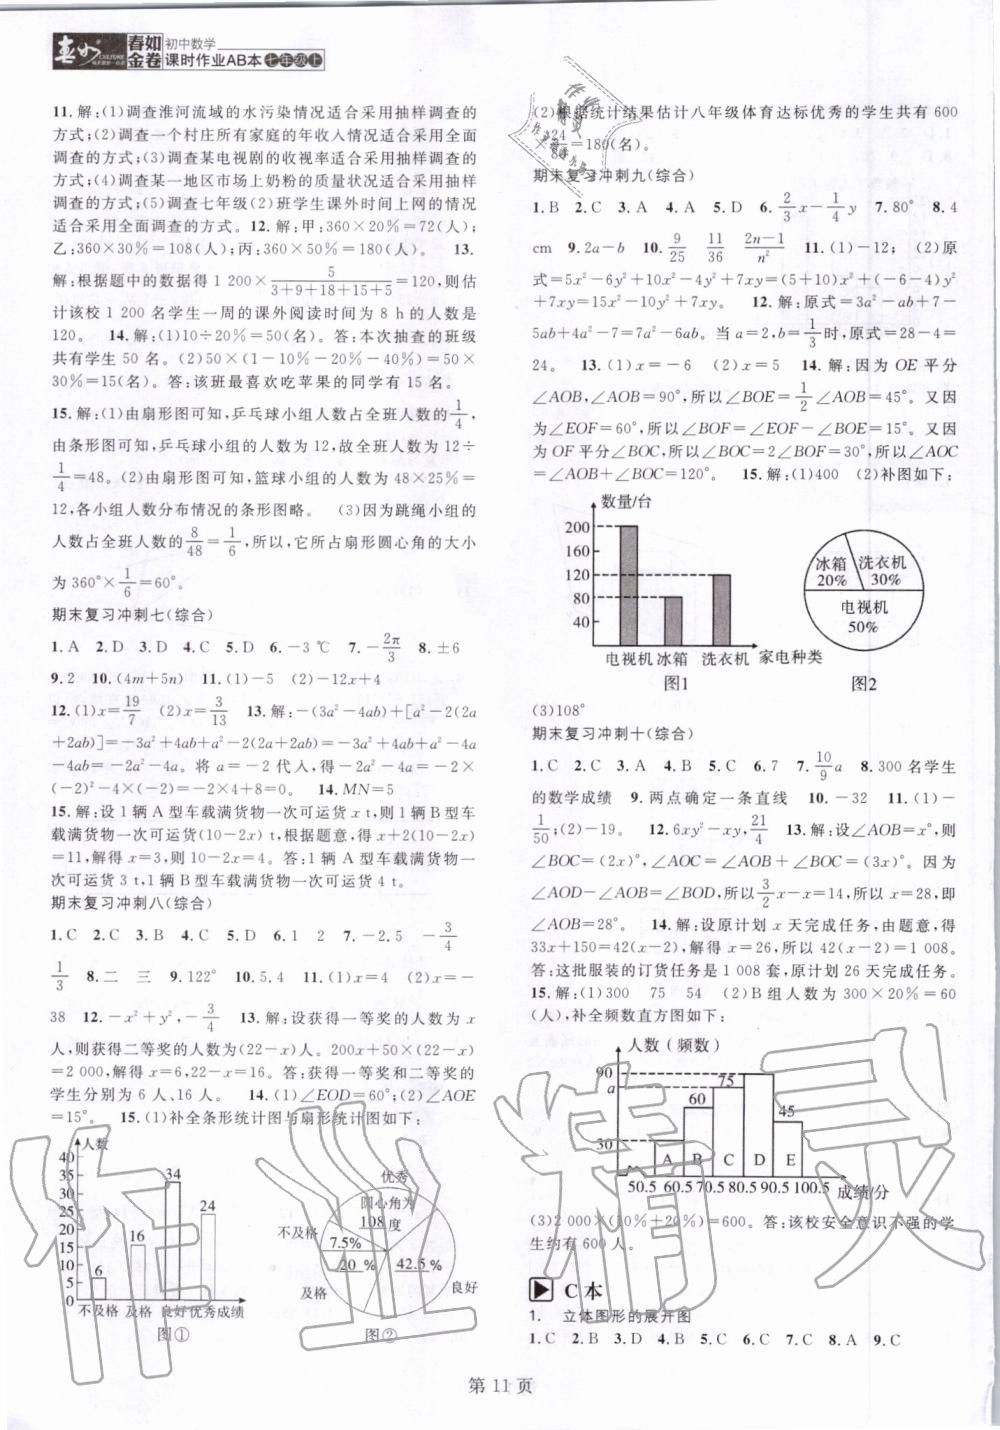 春如金卷
初中数学
课时作业AB本 七年级上
11.解:(1)调查淮河流域的水污染情况适合采用抽样调查的
方式;(2)调查一个村庄所有家庭的年收入情况适合采用全面
调查的方式;(3)调查某电视剧的收视率适合采用抽样调查的
方式;(4)调查某一地区市场上奶粉的质量状况适合采用抽样
调查的方式;(5)调查七年级(2)班学生课外时间上网的情况
适合采用全面调查的方式。 12.解:甲:360×20%=72(人);
乙:360×30%=108(人);丙:360×50%=180(人)。 13.
解:根据题中的数据得 1 200×5/(3+9+18+15+5)=120,则估
计该校 1 200 名学生一周的课外阅读时间为 8 h 的人数是
120。 14.解:(1)10÷20%=50(名)。答:本次抽查的班级
共有学生 50 名。(2)50×(1-10%-20%-40%)=50×
30%=15(名)。答:该班最喜欢吃苹果的同学有 15 名。
15.解:(1)由扇形图可知,乒乓球小组人数占全班人数的1/4,
由条形图可知,乒乓球小组的人数为 12,故全班人数为 12÷
1/4=48。(2)由扇形图可知,篮球小组的人数为 48×25%=
12,各小组人数分布情况的条形图略。 (3)因为跳绳小组的
人数占全班人数的8/48=1/6,所以,它所占扇形圆心角的大小
为 360°×1/6=60°。
期末复习冲刺七(综合)
1.A 2.D 3.D 4.C 5.D 6.-3 ℃ 7.-2π/3 8.±6
9.2 10.(4m+5n) 11.(1)-5 (2)-12x+4
12.(1)x=19/7 (2)x=3/13 13.解:-(3a²-4ab)+[a²-2(2a
+2ab)]=-3a²+4ab+a²-2(2a+2ab)=-3a²+4ab+a²-4a
-4ab=-2a²-4a。将 a=-2 代入,得-2a²-4a=-2×
(-2)²-4×(-2)=-2×4+8=0。 14.MN=5
15.解:设 1 辆 A 型车载满货物一次可运货 x t,则 1 辆 B 型车
载满货物一次可运货(10-2x) t,根据题意,得 x+2(10-2x)
=11,解得 x=3,则 10-2x=4。答:1 辆 A 型车载满货物一
次可运货 3 t,1 辆 B 型车载满货物一次可运货 4 t。
期末复习冲刺八(综合)
1.C 2.C 3.B 4.C 5.D 6.1 2 7.-2.5 -3/4
1/3 8.二 三 9.122° 10.5.4 11.(1)x=4 (2)x=-
38 12.-x²+y²,-3/4 13.解:设获得一等奖的人数为 x
人,则获得二等奖的人数为(22-x)人。200x+50×(22-x)
=2 000,解得 x=6,22-x=16。答:获得一等奖和二等奖的
学生分别为 6 人、16 人。 14.(1)∠EOD=60°;(2)∠AOE
=15°。 15.(1)补全条形统计图与扇形统计图如下:
人数
40
35
30
25
20
15
10
5
0
6
16
34
24
不及格 及格 良好 优秀 成绩
图①
优秀
圆心角为
108 度
不及格
7.5%
20 %
42.5 %
及格
良好
图②
(2)根据统计结果估计八年级体育达标优秀的学生共有 600
×24/80=180(名)。
期末复习冲刺九(综合)
1.B 2.C 3.A 4.A 5.D 6.2/3x-1/4y 7.80° 8.4
cm 9.2a-b 10.9/25 11/36 (2n-1)/n² 11.(1)-12; (2)原
式=5x²-6y²+10x²-4y²+7xy=(5+10)x²+(-6-4)y²
+7xy=15x²-10y²+7xy。 12.解:原式=3a²-ab+7-
5ab+4a²-7=7a²-6ab。当 a=2,b=1/3时,原式=28-4=
24。 13.(1)x=-6 (2)x=5 14.解:因为 OE 平分
∠AOB,∠AOB=90°,所以∠BOE=1/2∠AOB=45°。又因
为∠EOF=60°,所以∠BOF=∠EOF-∠BOE=15°。又因
为 OF 平分∠BOC,所以∠BOC=2∠BOF=30°,所以∠AOC
=∠AOB+∠BOC=120°。 15.解:(1)400 (2)补图如下:
数量/台
200
160
120
80
40
电视机 冰箱 洗衣机 家电种类
图1
冰箱
20%
洗衣机
30%
电视机
50%
图2
(3)108°
期末复习冲刺十(综合)
1.C 2.C 3.A 4.B 5.C 6.7 7.10/9a 8.300 名学生
的数学成绩 9.两点确定一条直线 10.-32 11.(1)-
1/50;(2)-19。 12.6xy²-xy,21/4 13.解:设∠AOB=x°,则
∠BOC=(2x)°,∠AOC=∠AOB+∠BOC=(3x)°。因为
∠AOD-∠AOB=∠BOD,所以3/2x-x=14,所以 x=28,即
∠AOB=28°。 14.解:设原计划 x 天完成任务,由题意,得
33x+150=42(x-2),解得 x=26,所以 42(x-2)=1 008。
答:这批服装的订货任务是 1 008 套,原计划 26 天完成任务。
15.解:(1)300 75 54 (2)B 组人数为 300×20%=60
(人),补全频数直方图如下:
人数(频数)
90
a
30
60
75
45
A B C D E
50.5 60.5 70.5 80.5 90.5 100.5 成绩/分
(3)2 000×(10%+20%)=600。答:该校安全意识不强的学
生约有 600 人。
C 本
1. 立体图形的展开图
1.C 2.B 3.D 4.D 5.B 6.C 7.C 8.A 9.C
第 11 页
作业精灵